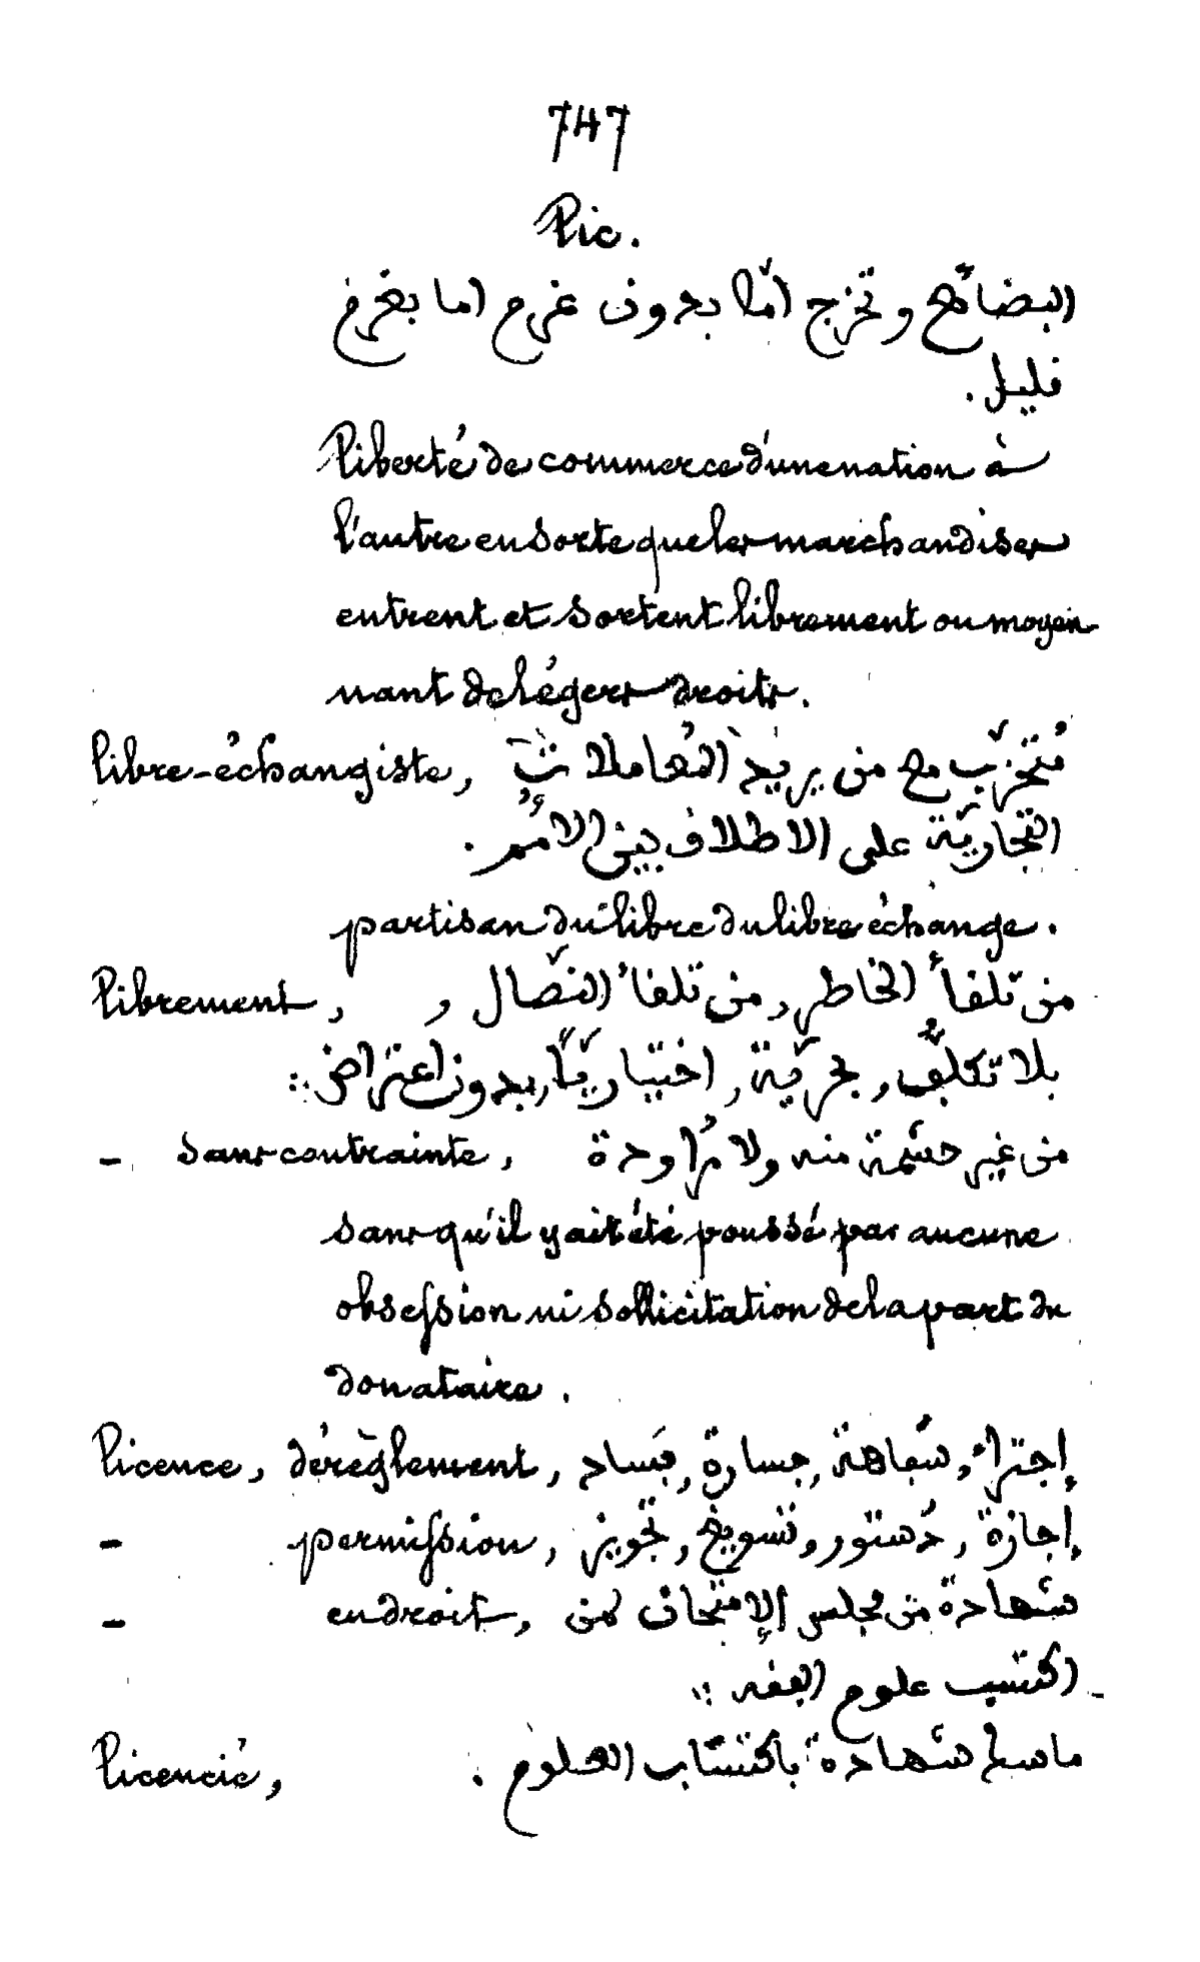 747
Lic.
البضائع وتخرج امّا بدون غرم اما بغرم
فليل.
liberté de commerce d'une nation à
l'autre en sorte que les marchandises
entrent et sortent librement ou moyen-
nant de légers droits.
libre-échangiste, مُتحزّب مع من يريد المُعاملات
التجاريّة على الاطلاف بين الأُمم.
partisan du libre du libre échange.
librement, من تلفأ الخاطر, من تلفاُ
بلا تكلّف, بحرّية, اختياريّاً, بدون اعتراض:
- sans contrainte, من غير حشمة منه ولا مُراودة
sans qu'il y ait été poussé par aucune
obsession ni sollicitation de la part du
donataire.
Licence, dérèglement, إجتراء, سَفاهة, جسارة, فساد
- permission, إجازة, دُستور, تسويغ, تجويز
- en droit, شهادة من مجلس الإمتحان لمن
اكتسب علوم الفقه :
Licencié, شهادة باكتساب العلوم.